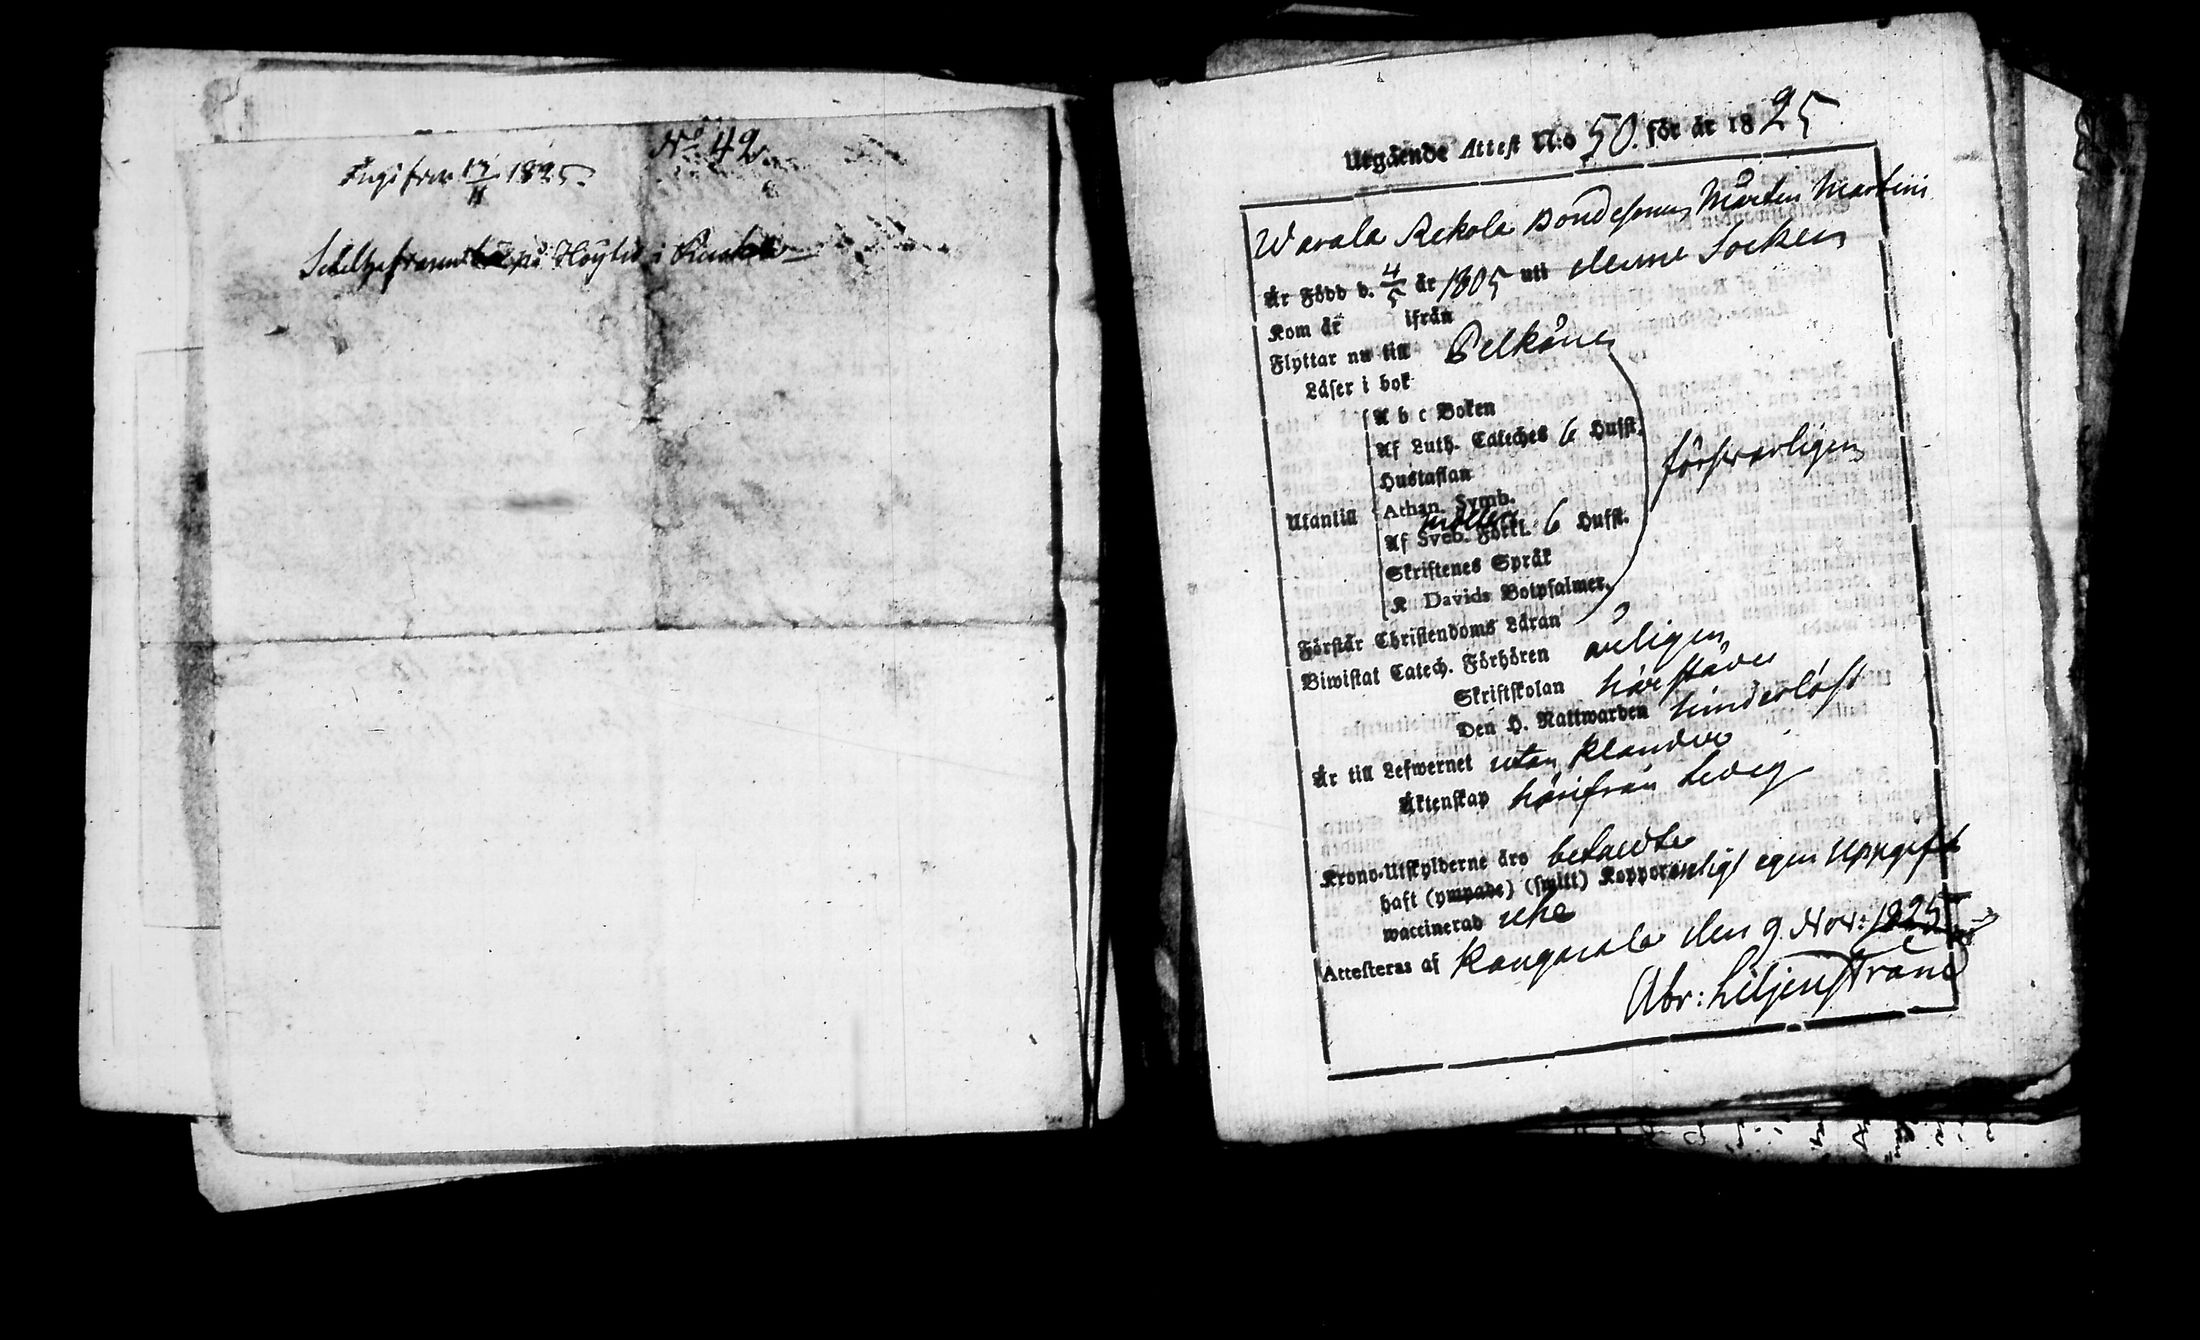 No 42
Ingifven 17/11 1825.
på Höyhtö i
Utgående Attest N:o 50. för år 1825
Warala Rekola Bondesonen Mårten Martini
Är Född d. 4/5 år 1805 uti denne Socken
Kom år ifrån
Flyttar nu till Pelkäne
Läser i bok
A b c Boken
Af Luth. Cateches 6 Hufst.
Hustaflan
försvarligen
Utantill Athan. Symb.
Möllers
Af Sveb. Förkl. 6 Hufst.
Skriftenes Språk
K Davids Botpsalmer
Förstår Christendoms Läran
Biwistat Catech. Förhören årligen
Skriftskolan härstädes
Den H. Nattwarden hinderlöst
Är till Lefwernet utan klander
Äktenskap härifrån ledig
Krono-Utskylderne äro betalde
haft (ympade) (smitt) Koppor enligt egen uppgift
waccinerad
Attesteras af Kangasala den 9 Nov: 1825
Abr: Liljenstrand